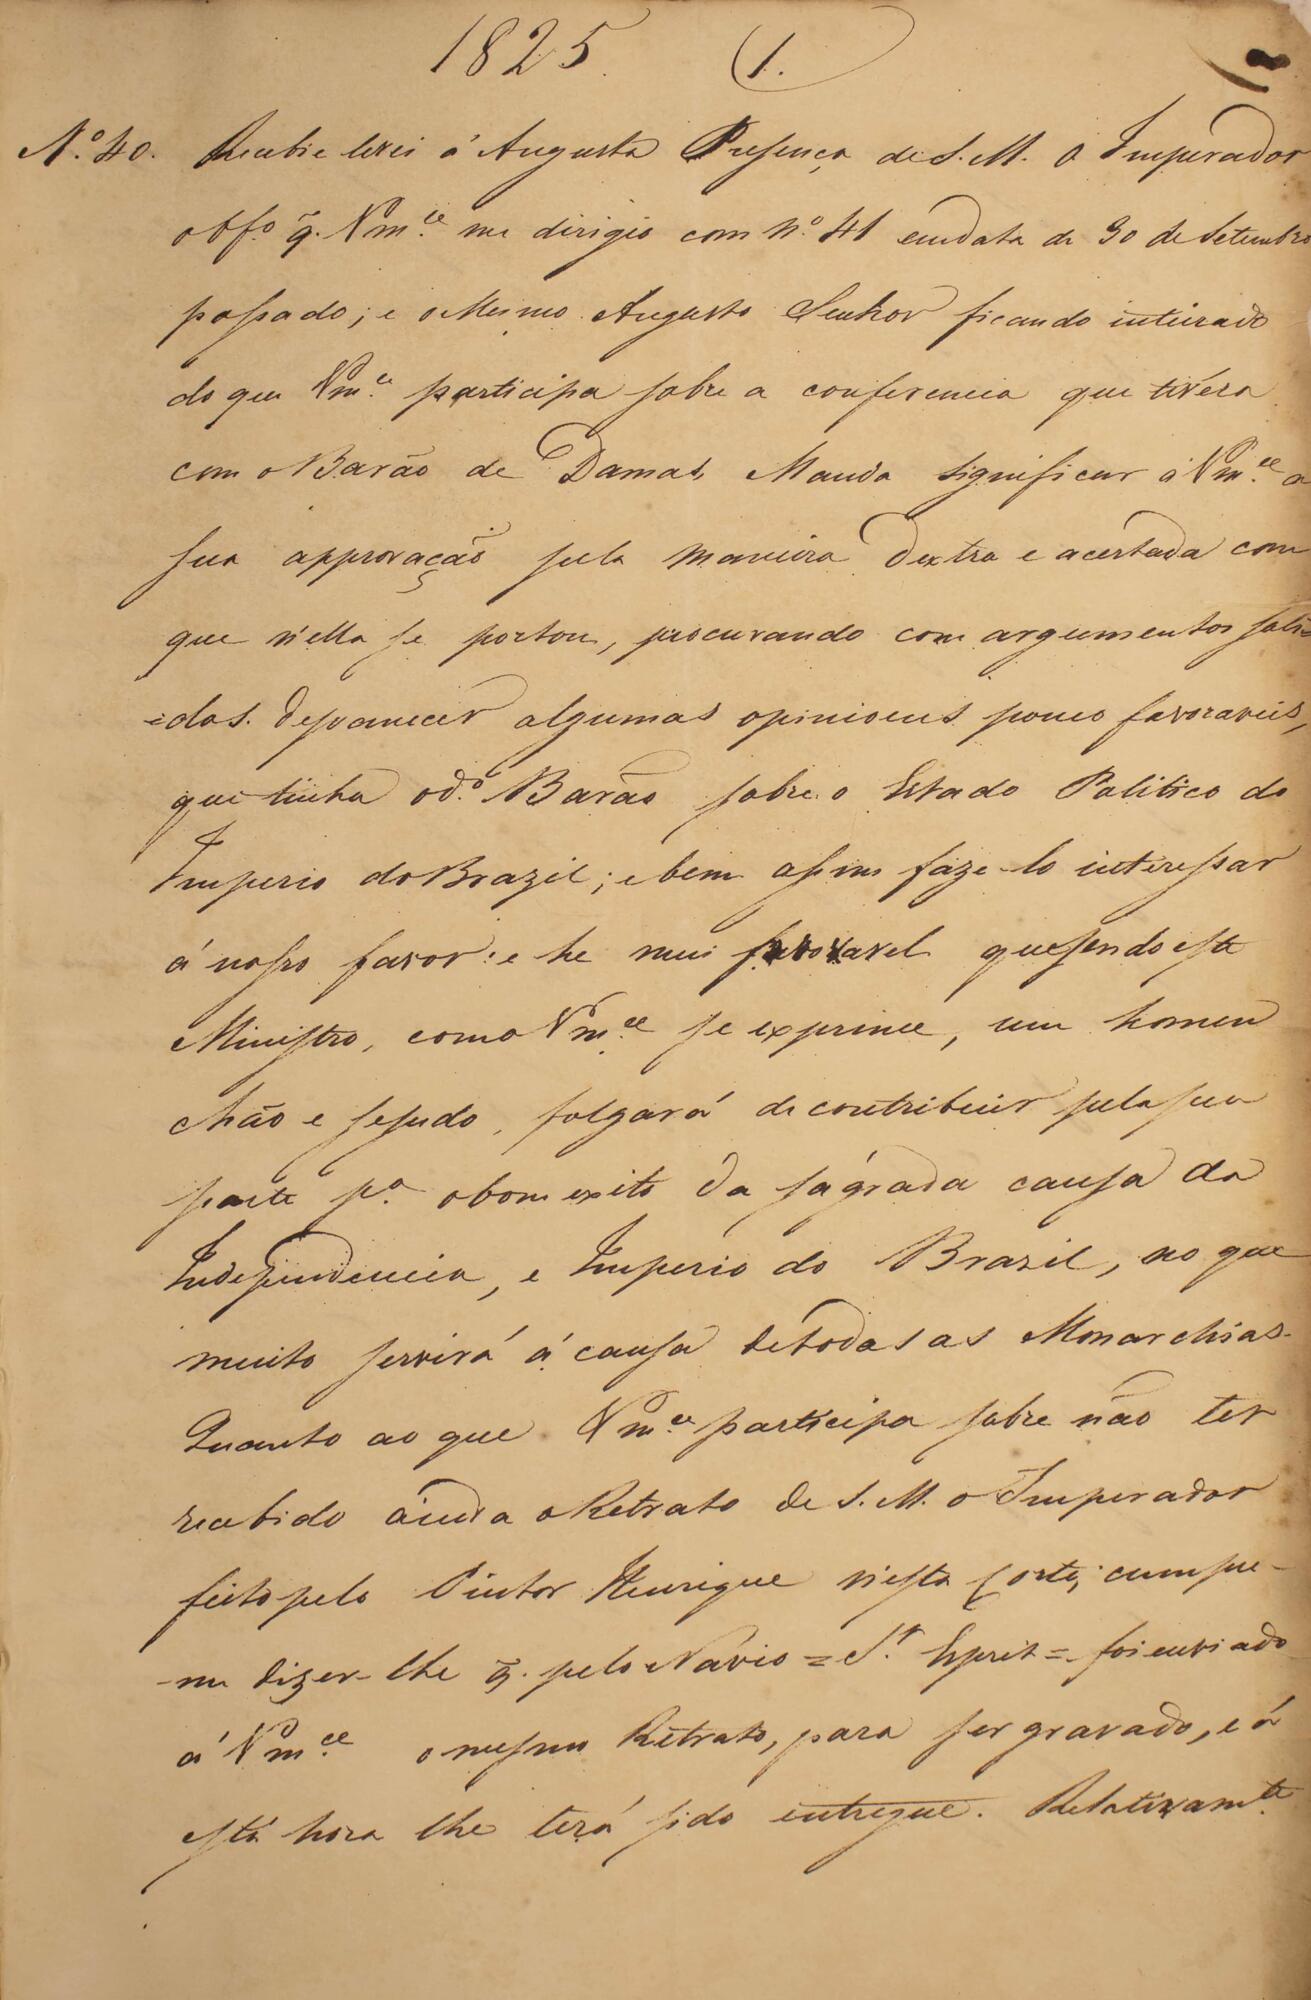 1825 (1.
N.º 40. Recebi e levei á Augusta Presença de S. M. O Imperador
o Off.º q̃. Vm.ce me dirigio com N.º 41 em data de 30 de Setembro
passado; e o Mesmo Augusto Senhor ficando inteirado
do que Vm.ce participa sobre a conferencia que tivera
com o Barão de Damas, Manda significar á Vm.ce a
sua approvação pela maneira dextra e acertada com
que n'ella se portou, procurando com argumentos soli=
=dos desvanecer algumas opinioens pouco favoraveis,
que tinha o d.º Barão sobre o Estado Politico do
Imperio do Brazil; e bem assim faze-lo interessar
á nosso favor: e he mui favoravel que sendo este
Ministro, como Vm.ce se exprime, um homem
chão e sesudo, folgará de contribuir pela sua
parte p.ª o bom exito da sagrada causa da
Independencia, e Imperio do Brazil, no que
muito servirá á causa de todas as Monarchias.
Quanto ao que Vm.ce participa sobre não ter
recebido ainda o Retrato de S. M. o Imperador
feito pelo Pintor Henrique n'esta Corte; cumpre-
-me dizer-lhe q̃. pelo Navio = S.t Esprit = foi enviado
á Vm.ce o mesmo Retrato, para ser gravado, e á
esta hora lhe terá sido entregue. Relativam.te